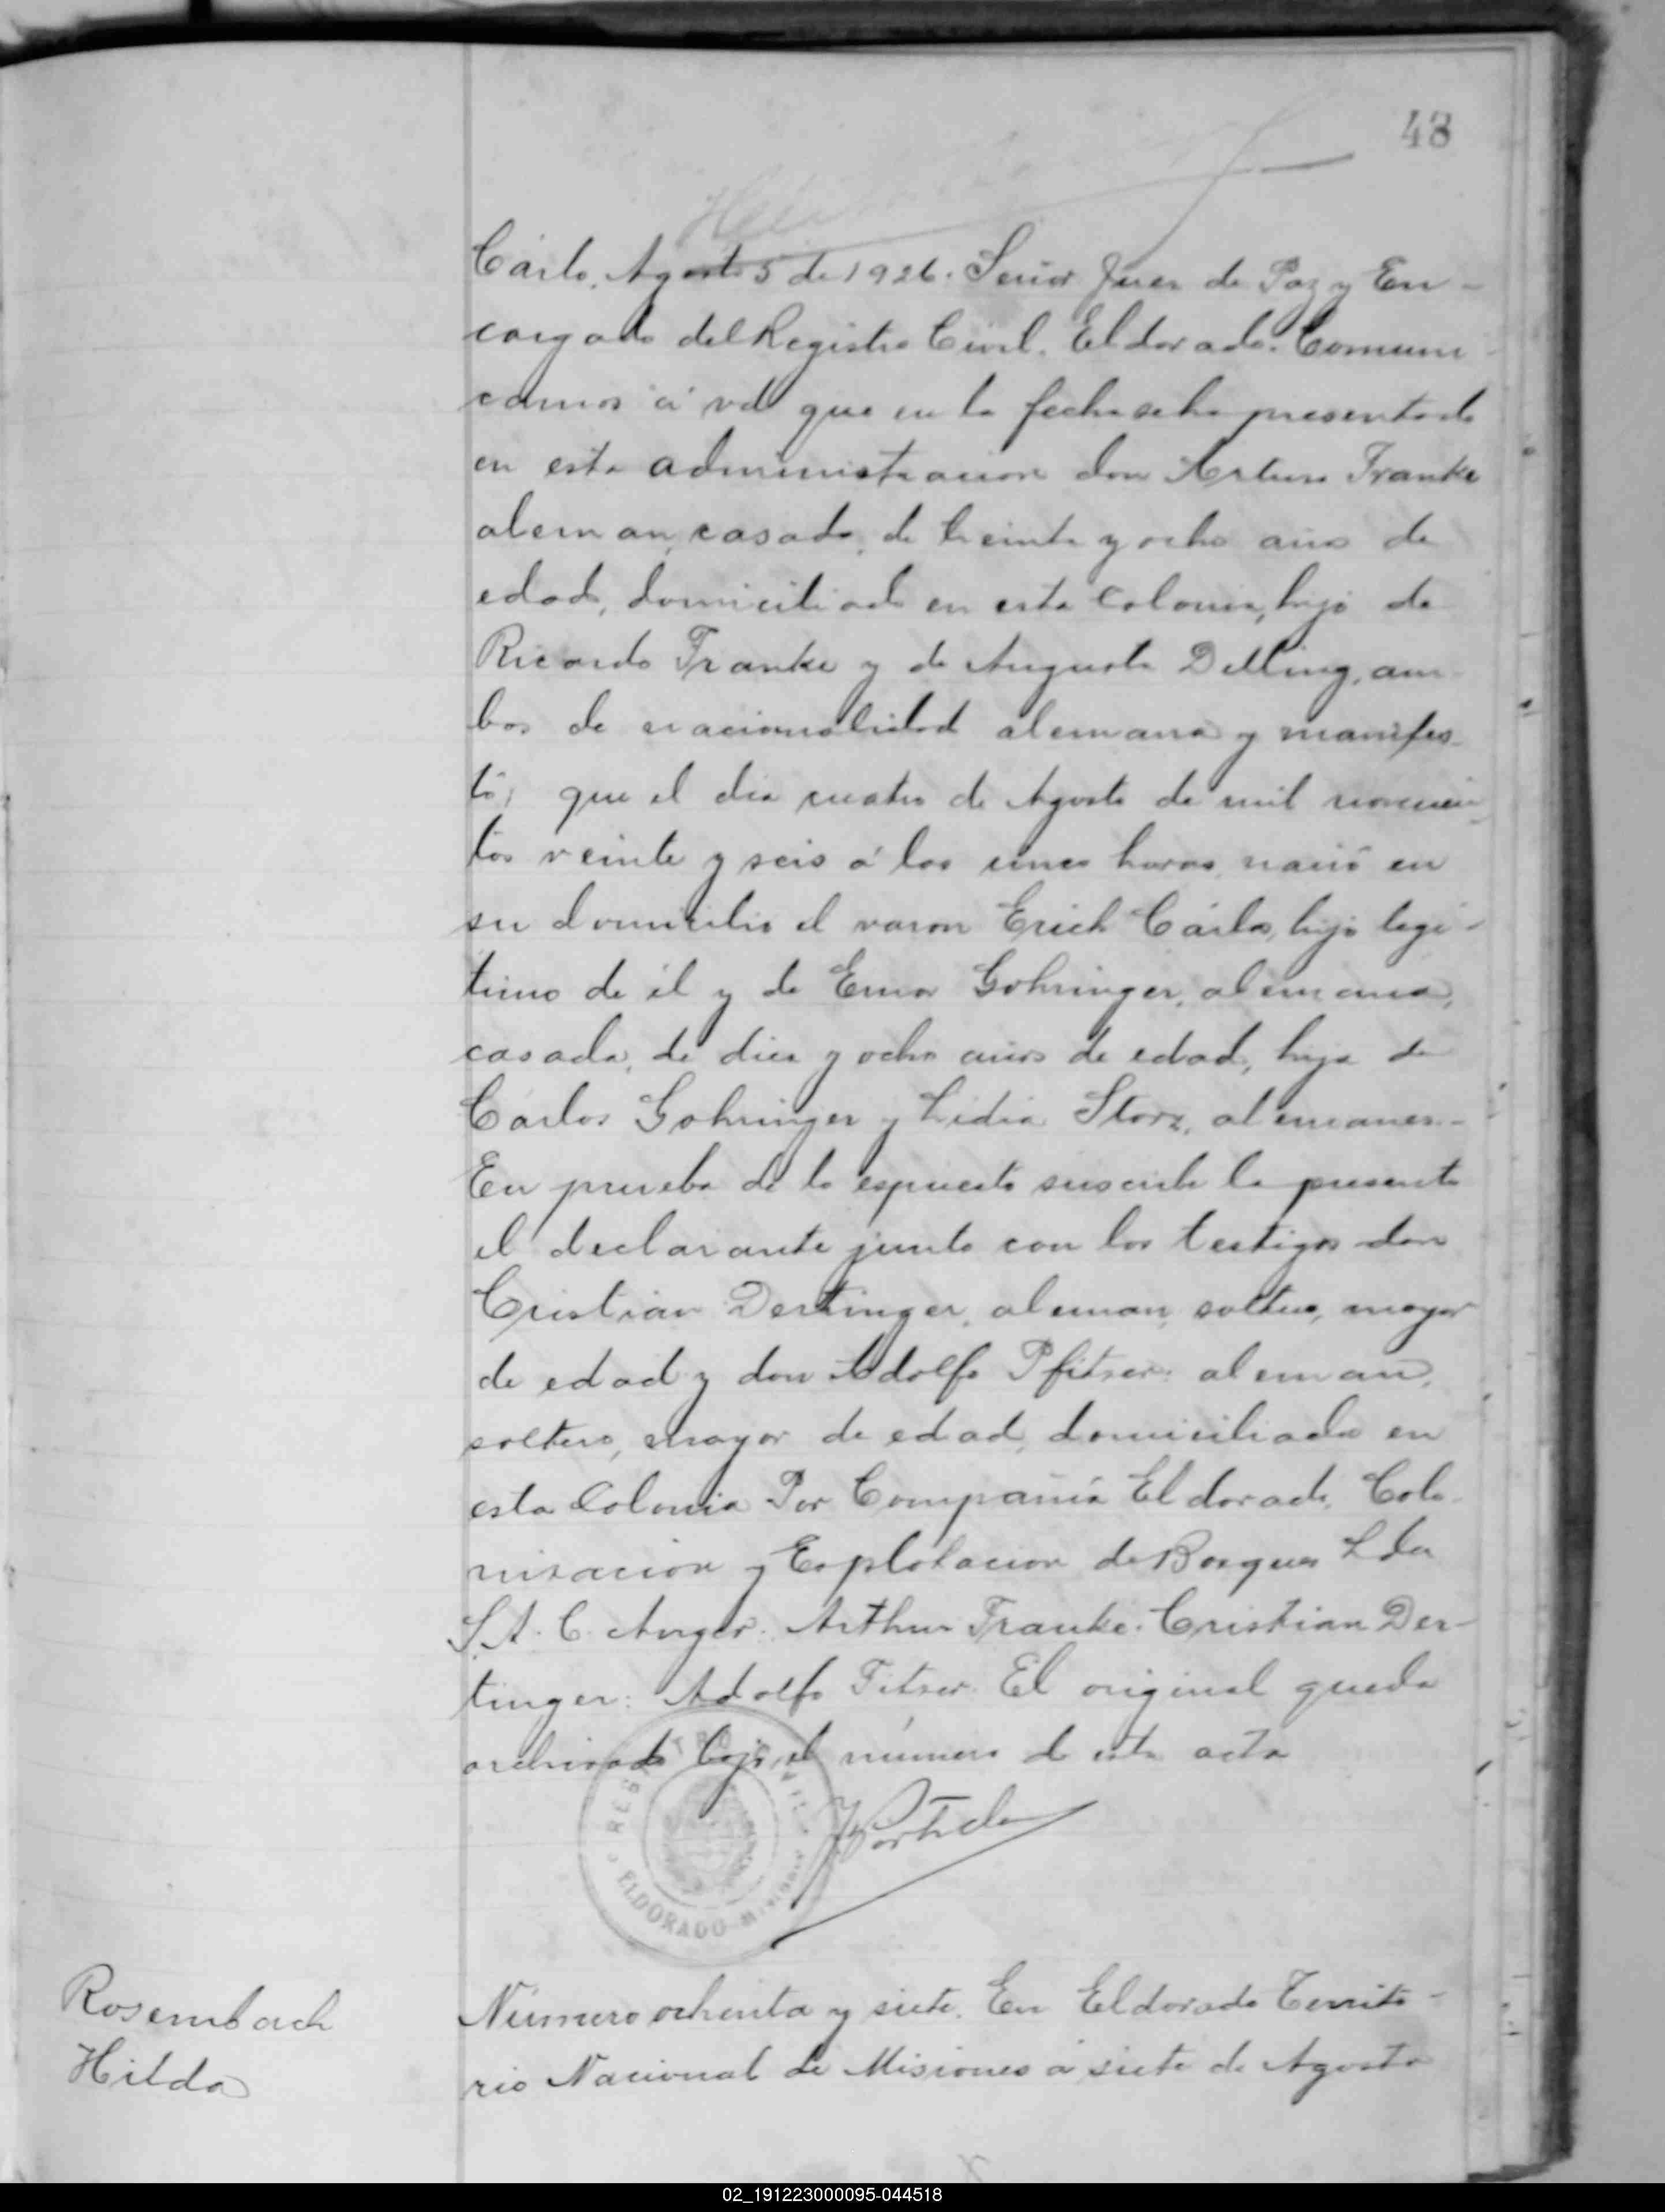 48
Cárlo. Agosto 5 de 1926. Señor Juez de Paz y En-
cargado del Registro Civil. Eldorado. Comuni
camos á vd que en la fecha se ha presentado
en esta administracion don Arturo Franke
aleman, casado, de treinta y ocho años de
edad, domiciliado en esta Colonia, hijo de
Ricardo Franke y de Augusta Delling, am-
bos de nacionalidad alemana y manifes-
tó; que el dia cuatro de Agosto de mil novecien-
tos veinte y seis á las cinco horas nació en
su domicilio el varon Erich Cárlo, hijo legi-
timo de él y de Ema Gohringer, alemana,
casada, de diez y ocho años de edad, hija de
Carlos Gohringer y Lidia Storz, alemanes.-
En prueba de lo espuesto suscribe la presente
el declarante junto con los testigos don
Cristian Dertinger, aleman, soltero, mayor
de edad y don Adolfo Pfitzer: aleman,
soltero, mayor de edad, domiciliados en
esta Colonia Por Compañia Eldorado, Colo-
nizacion y Explotacion de Bosques Lda
S.A. C. Anger. Arthur Franke. Cristian Der-
tinger: Adolfo Fitzer. El original queda
archivado bajo el número de esta acta
REGISTRO CIVIL
ELDORADO MISIONES
Rosembach
Hilda
Número ochenta y siete. En Eldorado Territo-
rio Nacional de Misiones á siete de Agosto
02_191223000095-044518